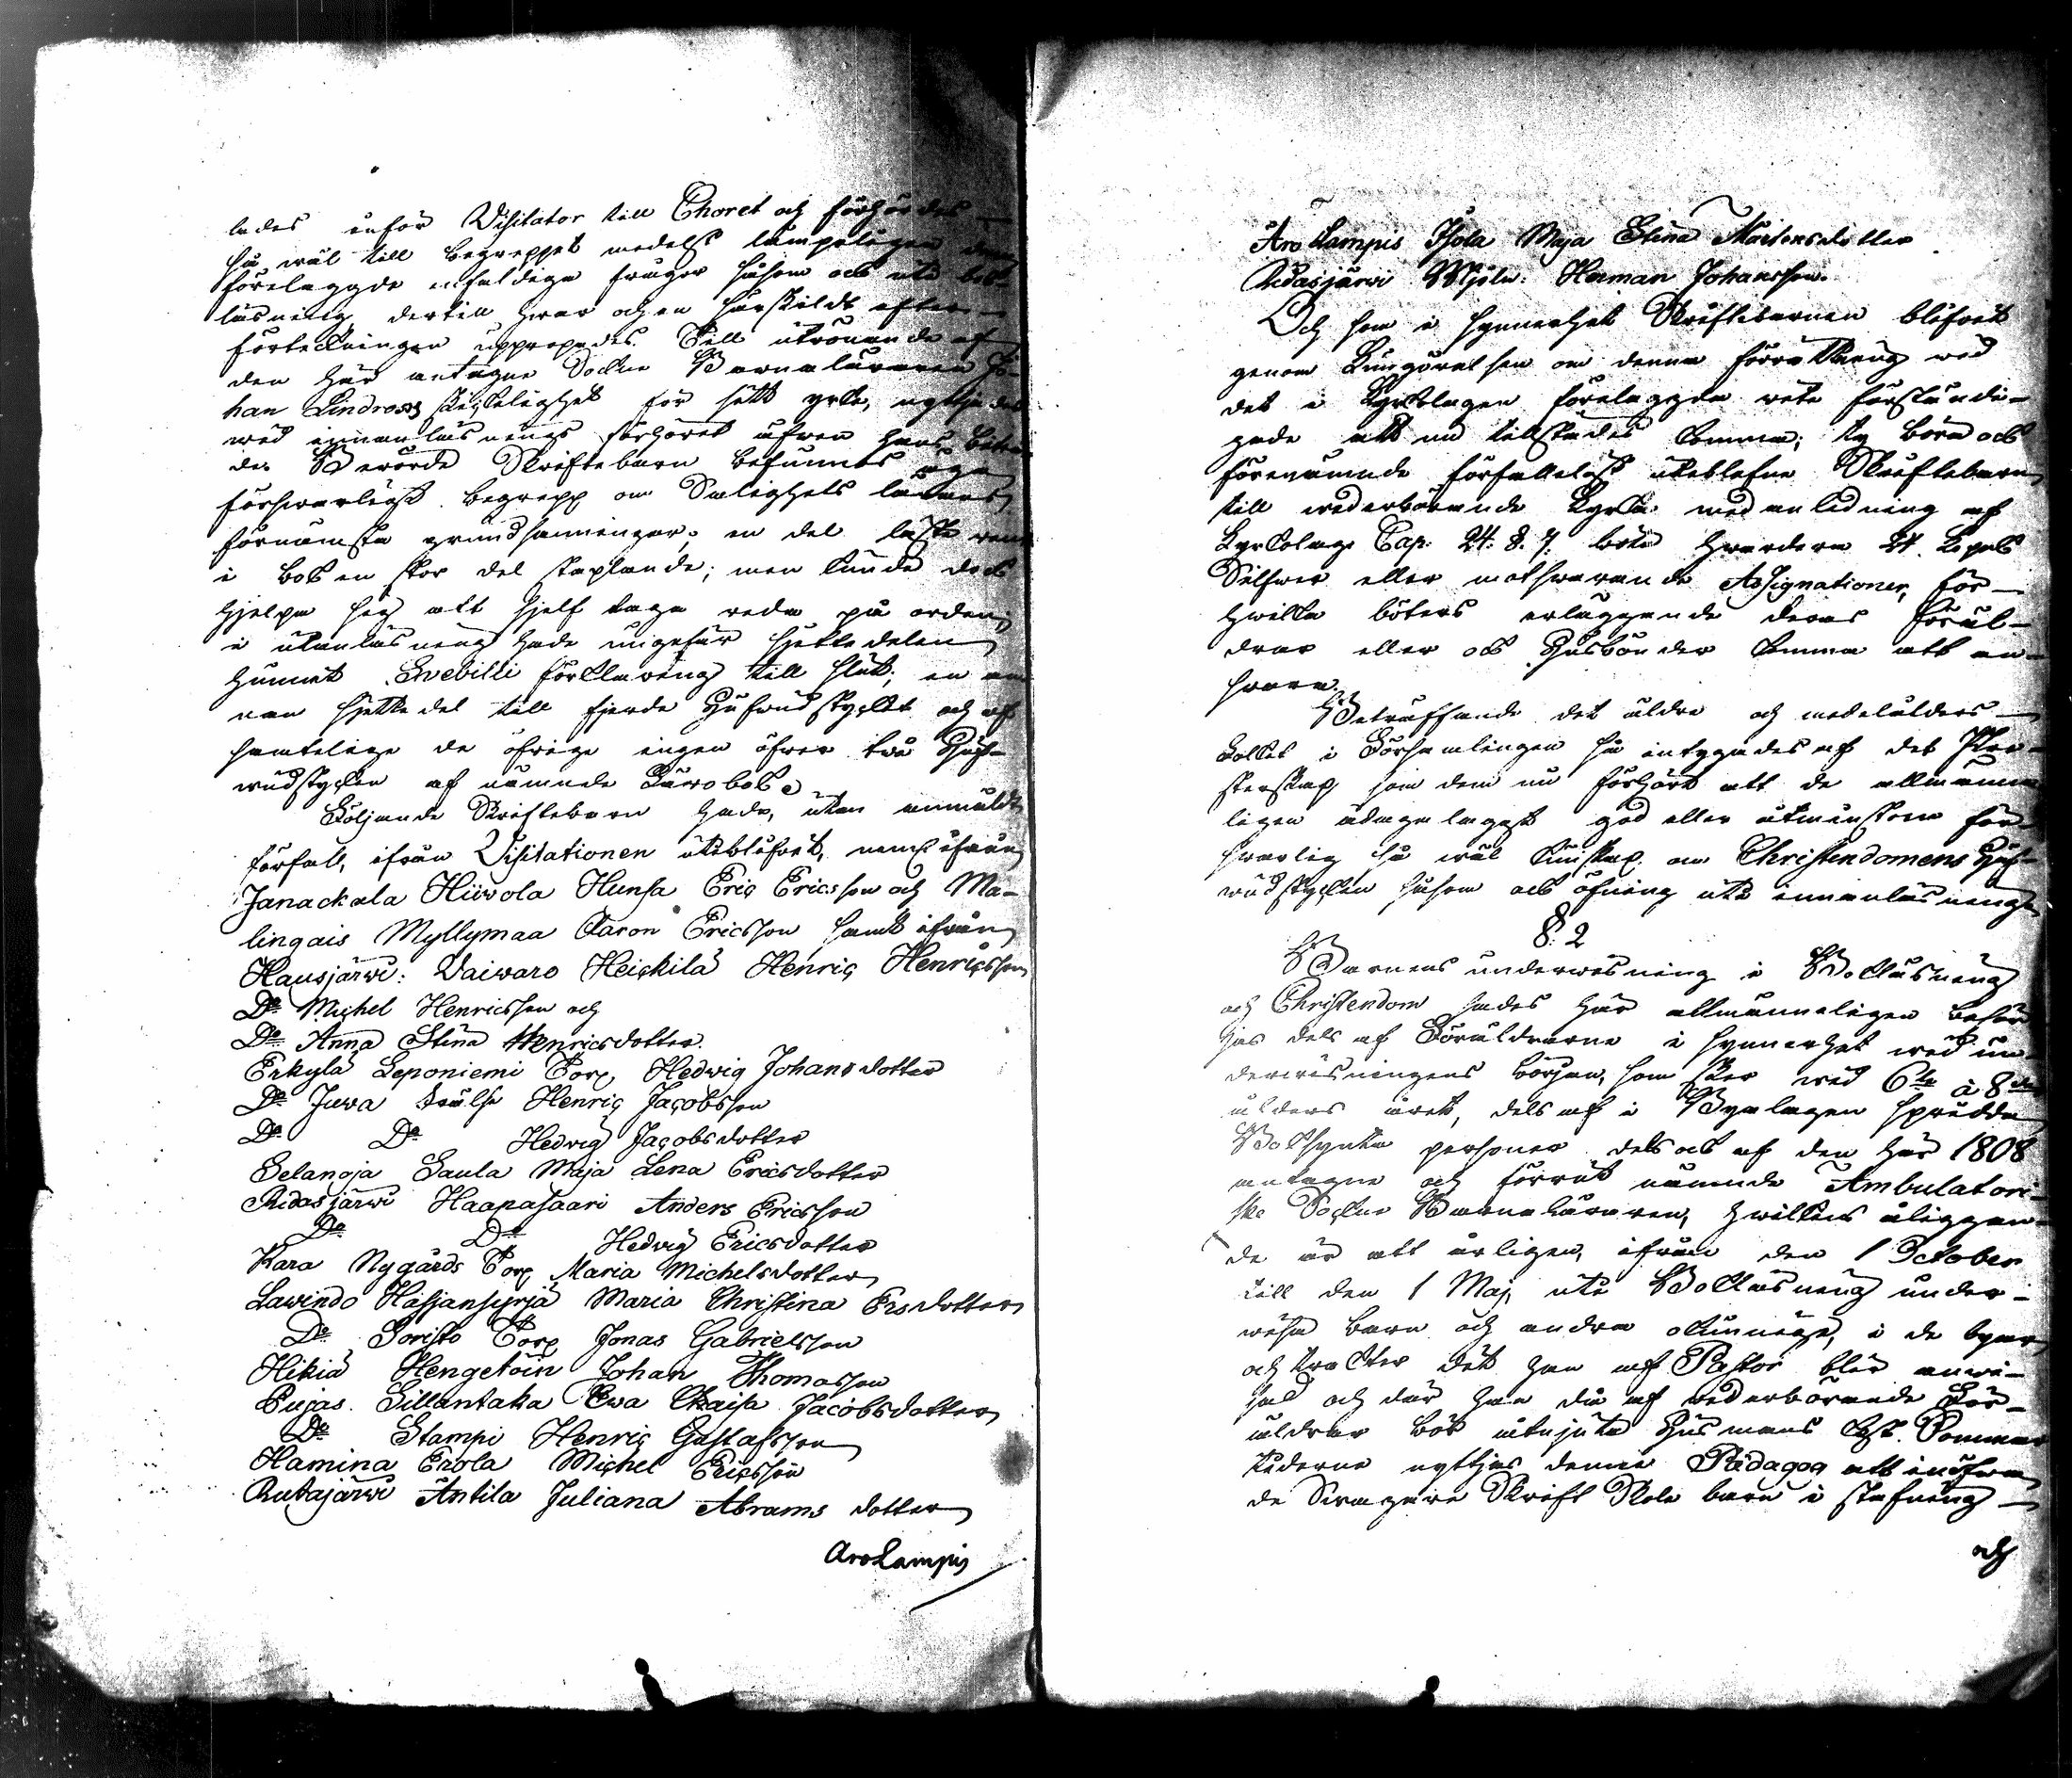 lades inför Visitator till Choret och förhördes
så wäl till begreppet medelst lämpeligen dem
förelaggde enfaldiga frågor såsom ock uti bok-
läsning dertill hwar och en särskildt efter
förteckningen uppropades. Till utrönande af
den här antagne Sockne Barnaläraren Jo-
han Lindroos skickelighet för sitt yrke, nyttjades
wid innanläsnings förhöret äfwen hans biträ-
de. Berörde Skriftebarn befunnos äga
förswarligt begrepp om Salighets lärans
förnämsta grundsanningar; en del läste rent
i bok en stor del staplande; men kunde dock
hjelpa sig att sjelf taga reda på orden;
i utanläsning hade ungefär sjettedelen
hunnit Svebilii förklaring till slut; en an-
nan sjettedel till fjerde Hufwudstycket och af
samtelige de öfrige ingen öfwer två Huf-
wudstycken af nämnde Lärobok.
Följande Skriftebarn hade, utan anmäldt
förfall, ifrån Visitationen uteblifvit, neml. ifrån
Janackala Hiivola Hunsa Eric Ericsson och Ma-
lingais Myllymaa Aaron Ericsson samt ifrån
Hausjärwi: Vaiwaro Heickilä Henric Henricsson
Do Michel Henricsson och
Do Anna Stina Henricsdotter.
Erkylä Leponiemi Torp Hedwig Johansdotter
Do Juwa Henric Jacobsson
Do Do Hedvig Jacobsdotter
Selanoja Saula Maja Lena Ericsdotter
Ridasjärwi Haapasaari Anders Ericsson
Do Do Hedvig Ericsdotter
Kara Nygårds Torp Maria Michelsdotter
Lavindo Hassjansyrjä Maria Christina Ersdotter
Do Soristo Torp Jonas Gabrielsson
Hikiä Hengetöin Johan Thomasson
Pujas. Sillantaka Ewa Caisa Jacobsdotter
Do Stampi Henric Gustafsson
Hamina Erola Michel Ericsson
Rutajärwi Antila Juliana Abrams dotter
Arolampis
Arolampis Isola Maja Stina Mårtensdotter
Ridasjärwi Mjöln. Herman Johansson.
Och som i synnerhet Skriftebarnen blifvit
genom Kungörelsen om denna förrättning wid
det i Kyrkolagen förelaggda wite förständi-
gade att nu tillstädes komma; ty böra ock
förenämnde förfallelöst uteblefne Skriftebarn
till wederbörande Kyrka med anledning af
Kyrkolags Cap. 24. §. 7. böta hwardera 24 Kopek
Silfwer eller motswarande Assignationer, för
hwilka böters erläggande deras Föräl-
drar eller ock Husbönder komma att an-
swara.
Beträffande det äldre och medelålders
Folket i Församlingen så intygades af det Pre-
sterskap som dem nu förhört att de allmänne-
ligen ådagalagt god eller åtminstone för-
swarlig så wäl kunskap om Christendomens Huf-
wudstycken såsom ock öfning uti innanläsning.
§. 2
Barnens underwisning i Bokläsning
och Christendom sades här allmänneligen besör-
jas dels af Föräldrarne i synnerhet wid un-
derwisningens början, som sker wid 6te à 8de
ålders året, dels af i Byalagen spridda
Bokkynta personer dels ock af den här 1808
antagne och förrut nämnde Ambulatori-
ske Sockne Barnaläraren, hwilkens åliggan-
de är att årligen, ifrån den 1 October
till den 1 Maj uti Bokläsning under-
wisa barn och andra okunniga, i de byar
och trakter dit han af Pastor blir anwi-
sad och där han då af wederbörande För-
äldrar bör åtnjuta Husmans kost. Sommar
tiderne nyttjas denne Pædagog att inöfwa
de swagare Skrift Skole barn i stafning
och